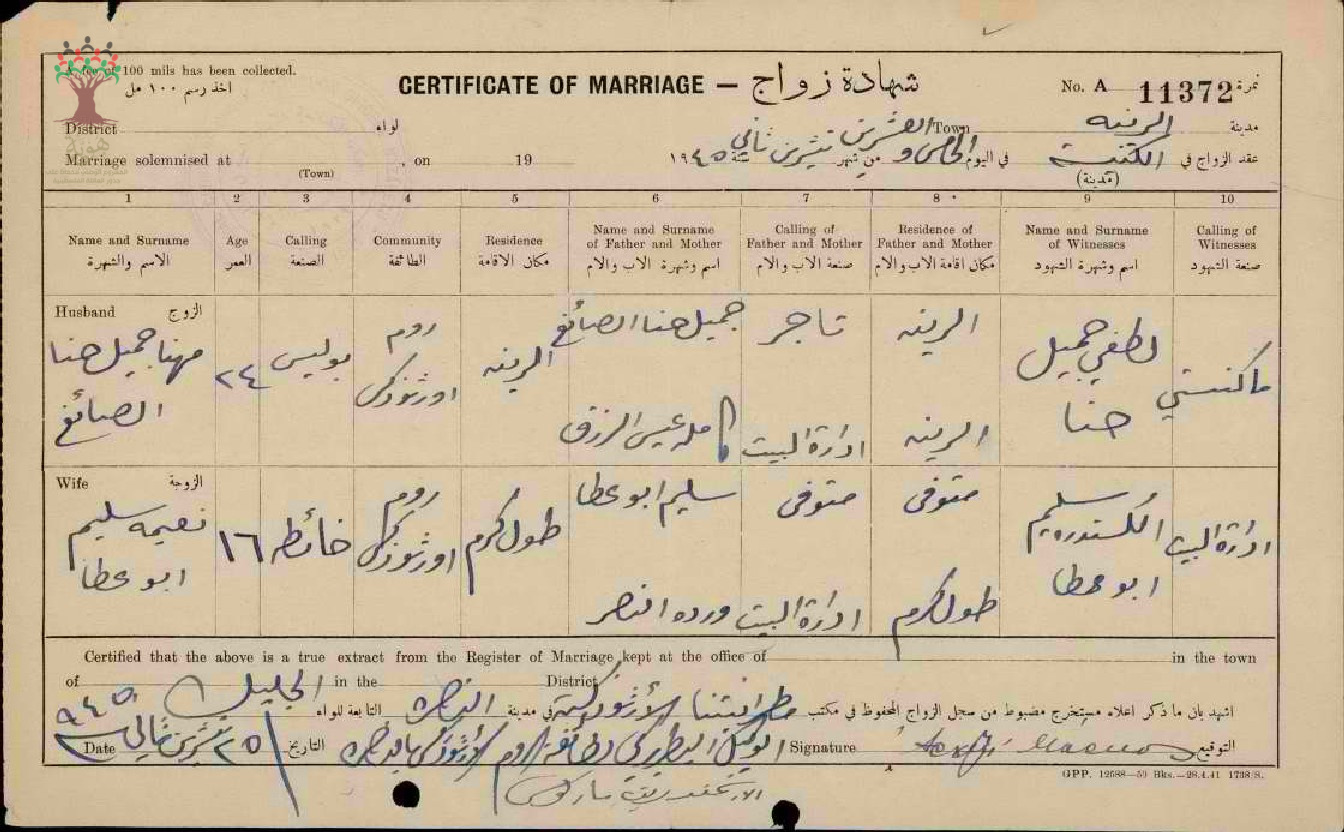 A fee of 100 mils has been collected.
اخذ رسم ١٠٠ مل
CERTIFICATE OF MARRIAGE — شهادة زواج
No. A 11372 نمرة
District لواء
Town الرينه مدينة
Marriage solemnised at (Town) , on 19
عقد الزواج في الكنيسة (مدينة) في اليوم الخامس والعشرين من شهر تشرين ثاني سنة ١٩٤٥
1 2 3 4 5 6 7 8 9 10
Name and Surname الاسم والشهرة
Age العمر
Calling الصنعة
Community الطائفة
Residence مكان الاقامة
Name and Surname of Father and Mother اسم وشهرة الاب والام
Calling of Father and Mother صنعة الاب والام
Residence of Father and Mother مكان اقامة الاب والام
Name and Surname of Witnesses اسم وشهرة الشهود
Calling of Witnesses صنعة الشهود
Husband الزوج
مهنا جميل حنا
الصائغ
٢٤
بوليس
روم
اورثوذكس
الرينه
جميل حنا الصائغ
كامله عيسى الرزق
تاجر
ادارة البيت
الرينه
الرينه
لطفي جميل
حنا
ماكنستي
Wife الزوجة
نعيمه سليم
ابو عطا
١٦
خائطه
روم
اورثوذكس
طول كرم
سليم ابو عطا
ورده الناصر
متوفى
ادارة البيت
متوفى
طول كرم
سليم
ابو عطا
ادارة البيت
Certified that the above is a true extract from the Register of Marriage kept at the office of in the town
of in the District
اشهد باني ما ذكر اعلاه مستخرج مضبوط من سجل الزواج المحفوظ في مكتب مطرانيتنا الأرثوذكسية في مدينة الناصرة التابعة للواء الجليل
Date ٢٥ تشرين ثاني ٩٤٥ التاريخ
الوكيل البطريركي لطائفة الروم الأرثوذكس بالناصرة
Signature التوقيع
الارشمندريت ماركوس
GPP. 12688—50 Bks.—28.4.41 1738/S.
هوية